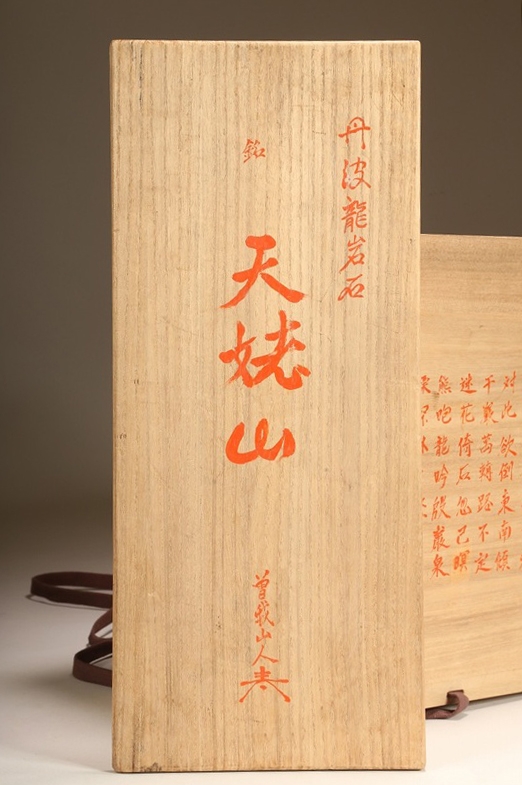 丹波龍岩石
銘
天姥山
曽我山人
対此欲倒東南傾
千巖萬轉路不定
迷花倚石忽已暝
熊咆龍吟殷巖泉